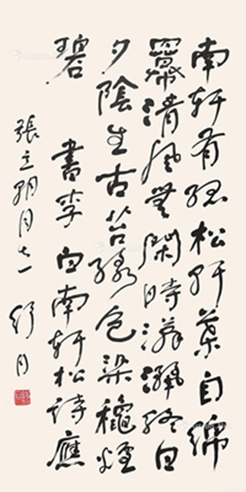 南軒有孤松柯葉自綿
羃清風無閑時瀟灑終日
夕陰生古苔綠色染龝煙
碧 書李白南軒松詩應
張立明同志 舒同